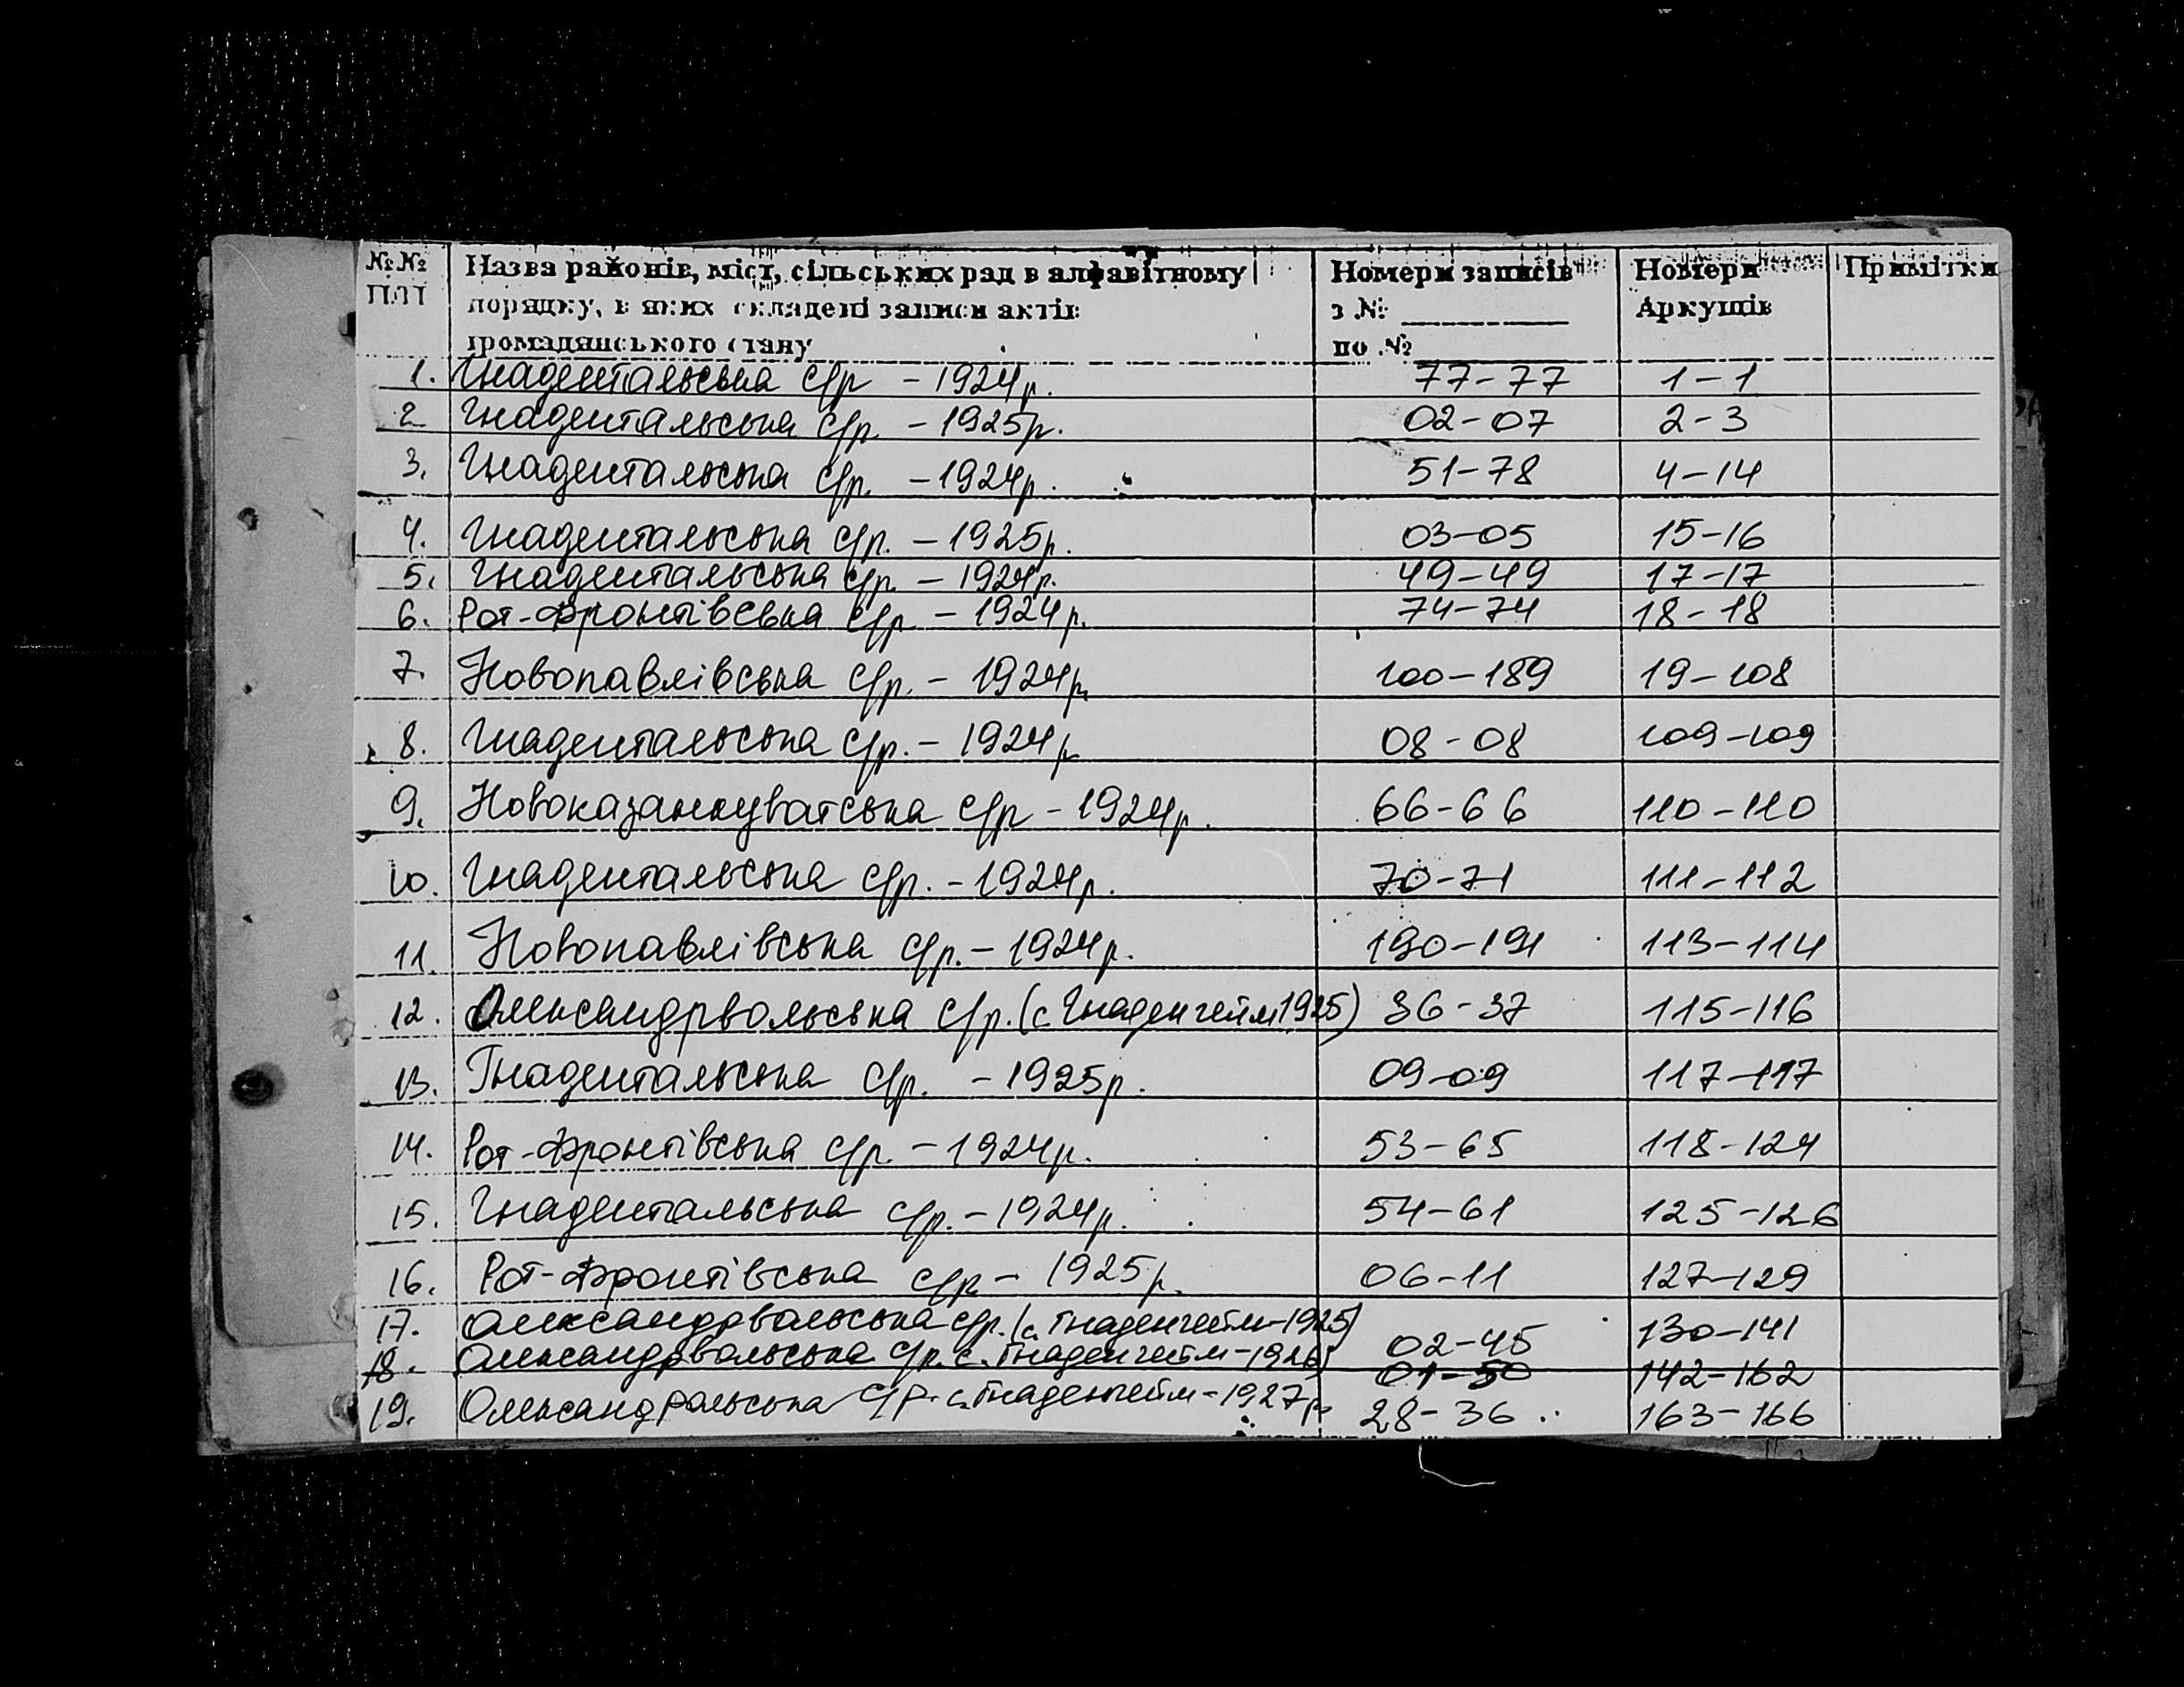 №№ Назва районів, міст, сільських рад в алфавітному Номери записів Номери Примітки
П/П порядку, в яких складені записи актів з № ________ Аркушів
громадянського стану по №
1. Гнадентальська с/р - 1924р. 77-77 1-1
2 Гнадентальська с/р. - 1925р. 02-07 2-3
3. Гнадентальська с/р. - 1924р. 51-78 4-14
4. Гнадентальська с/р. - 1925р. 03-05 15-16
5. Гнадентальська с/р. - 1924р. 49-49 17-17
6. Рот-Фронтівська с/р - 1924р. 74-74 18-18
7. Новопавлівська с/р. - 1924р. 100-189 19-108
8. Гнадентальська с/р. - 1924р 08-08 109-109
9. Новоказанкуватська с/р - 1924р. 66-66 110-110
10. Гнадентальська с/р. - 1924р. 70-71 111-112
11. Новопавлівська с/р. - 1924р. 190-191 113-114
12. Олександрвольська с/р. (с. Гнаденгейм 1925) 36-37 115-116
13. Гнадентальська с/р. - 1925р. 09-09 117-117
14. Рот-Фронтівська с/р. - 1924р. 53-65 118-124
15. Гнадентальська с/р. - 1924р. 54-61 125-126
16. Рот-Фронтівська с/р - 1925р. 06-11 127-129
17. Олександрвальська с/р. (с. Гнаденгейм-1925) 02-45 130-141
18. Олександрвольська с/р. с. Гнаденгейм-1926) 01-50 142-162
19. Олександральська с/р. с. Гнаденгейм-1927р. 28-36 163-166